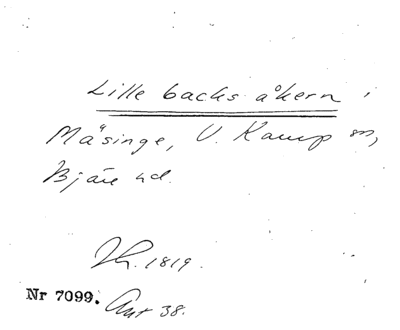 Lille backs åkern i
Mäsinge, V. Karup sn,
Bjäre hd.
Th. 1819.
Nr 7099. Ant 38.